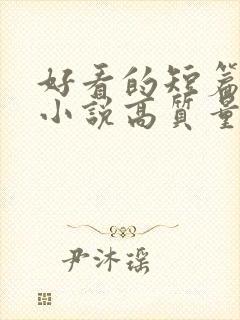 好看的短篇
小説高質量
尹沐瑶